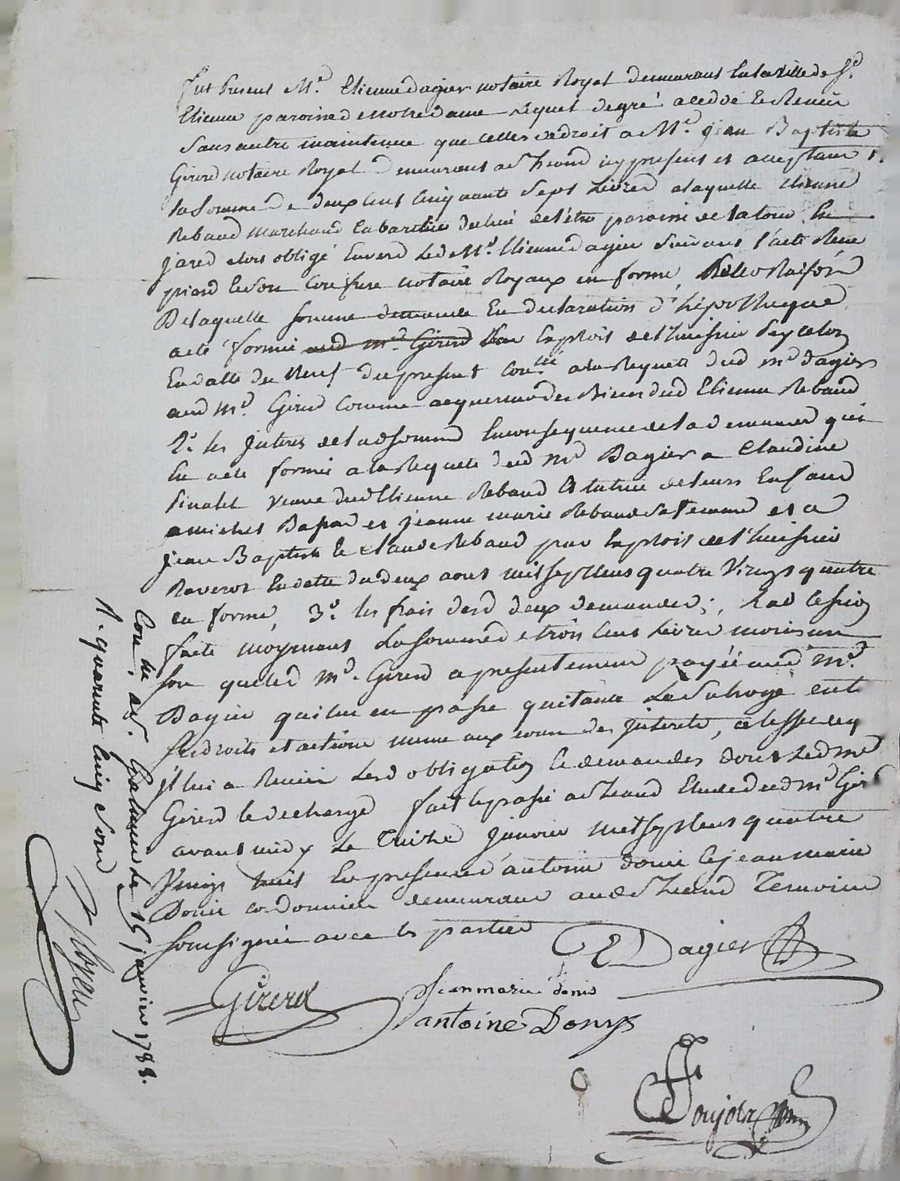 fut Present Me. Etienne dagier notaire Royal demeurant en la ville de St.
Etienne paroisse de notre dame Lequel de gré a cedé et Remis
Sans autre maintenue que celle de droit a Me. jean Baptiste
Girerd notaire Royal demeurant a St heand icy present et acceptant 1°.
La Somme de deux cent Cinquante Sept Livres a laquelle etienne
Rebaud marchand
jarez obligé Envers Led Me. Etienne dagier Suivant l'acte Recu
piard et Son Confrere notaire Royaux en forme,
De laquelle somme demande En declaration d'hipotheque
a ete formée aud me. Girerd Par Exploit de l'huissier
En datte du Neuf du present Con.lé a la Requete dud me dagier
aud me. Girerd Comme acquereur des Biens dud Etienne Rebaud
2°. les jnterets de lad somme En consequence de la demande qui
En a ete formée a la Requete dud me Dagier a Claudine
Pinatel veuve dud Etienne Rebaud et tutrice de leurs Enfans
a michel et jeanne marie Rebaud sa femme et a
jean Baptiste et Claude Rebaud par Exploit de l'huissier
Raverot En datte du deux aout mil Sept Cens quatre Vingt quatre
en forme, 3°. les frais desd deux demandes; Lad Cession
faite moyennant La Somme de trois Cens Livres moins un
sou que led me. Girerd a presentement payée aud me.
Dagier qui lui en passe quitance Le Subroge en Ses
droits et actions meme aux cours des jnterets, a l'effet de quoy
jl lui a Remis Lesd obligation et demandes dont Led me
Girerd le decharge fait et passé a St heand Etude dud me Girerd
avant midy Le Treize janvier mil sept Cens quatre
Vingt huit En presence d'antoine donis et jean marie
Donis cordonnier demeurant aud St heand Temoins
Soussignés avec les parties
Dagier
Girerd
Jean marie donis
antoine Donys
Con.lé a St. Galmier le 15 janvier 1788.
R. quarante Cinq Sous